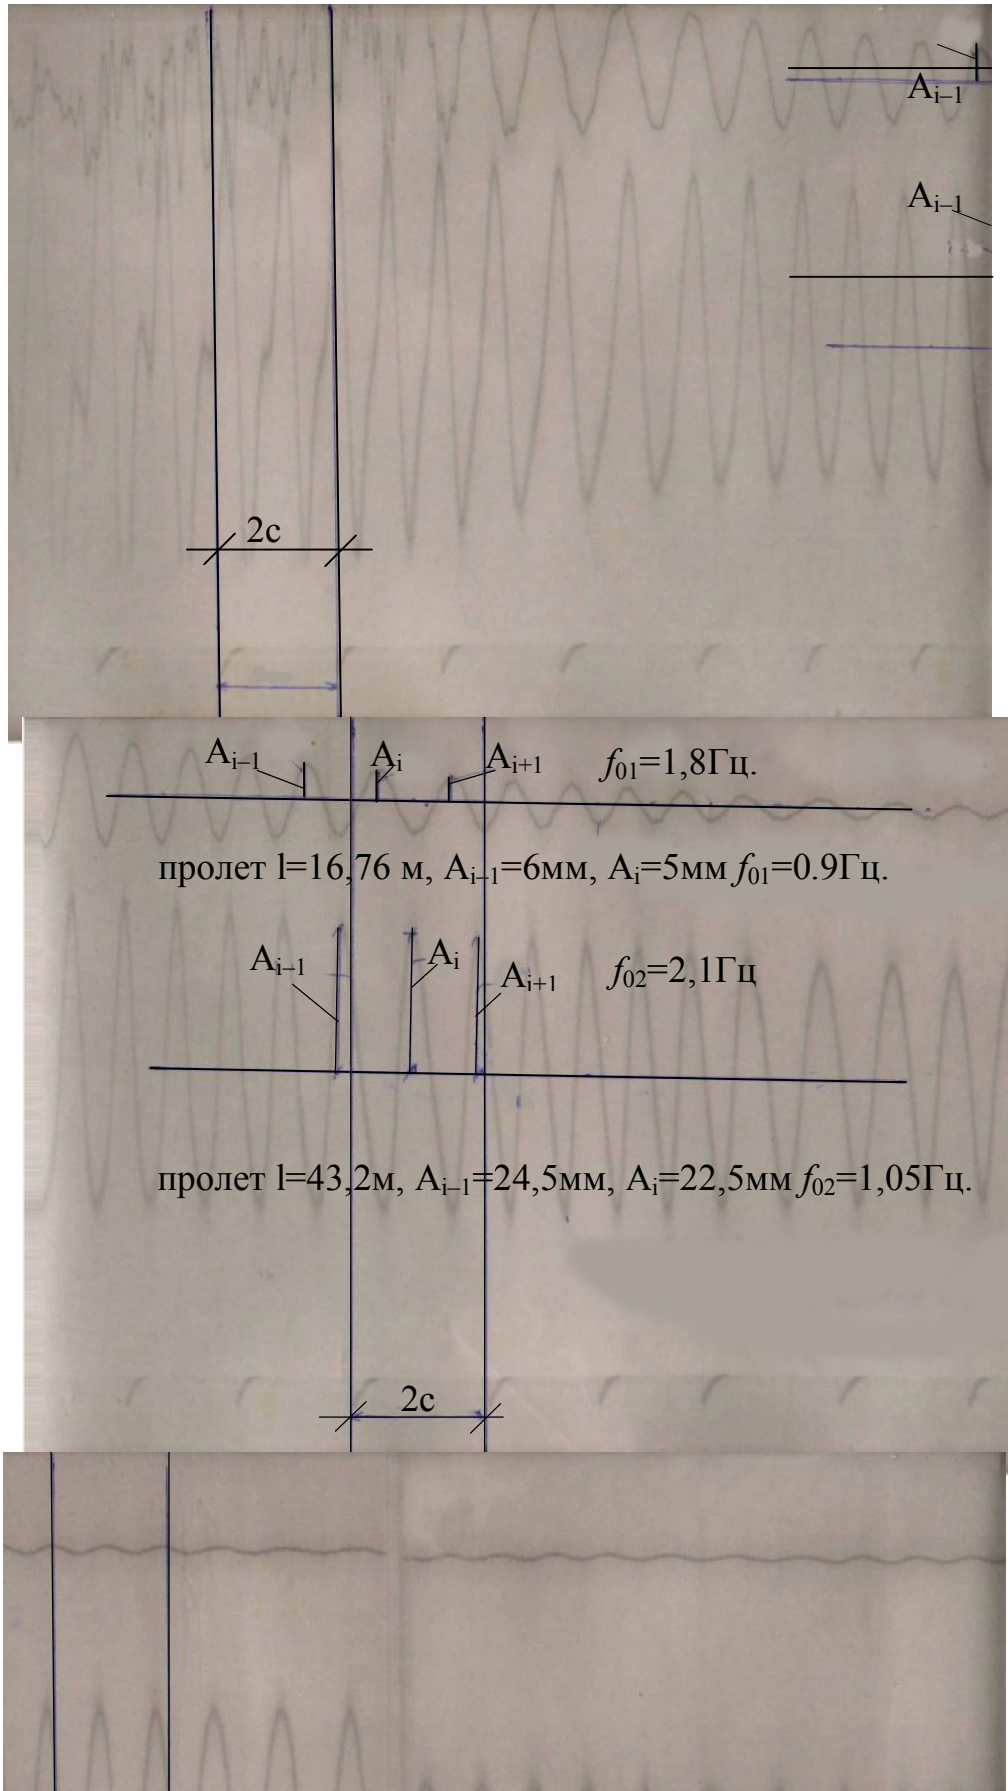 A i–1
A i–1
2с
A i–1 A i A i+1 f 01=1,8Гц.
пролет l=16,76 м, A i–1=6мм, A i=5мм f 01=0.9Гц.
A i–1 A i A i+1 f 02=2,1Гц
пролет l=43,2м, A i–1=24,5мм, A i=22,5мм f 02=1,05Гц.
2с